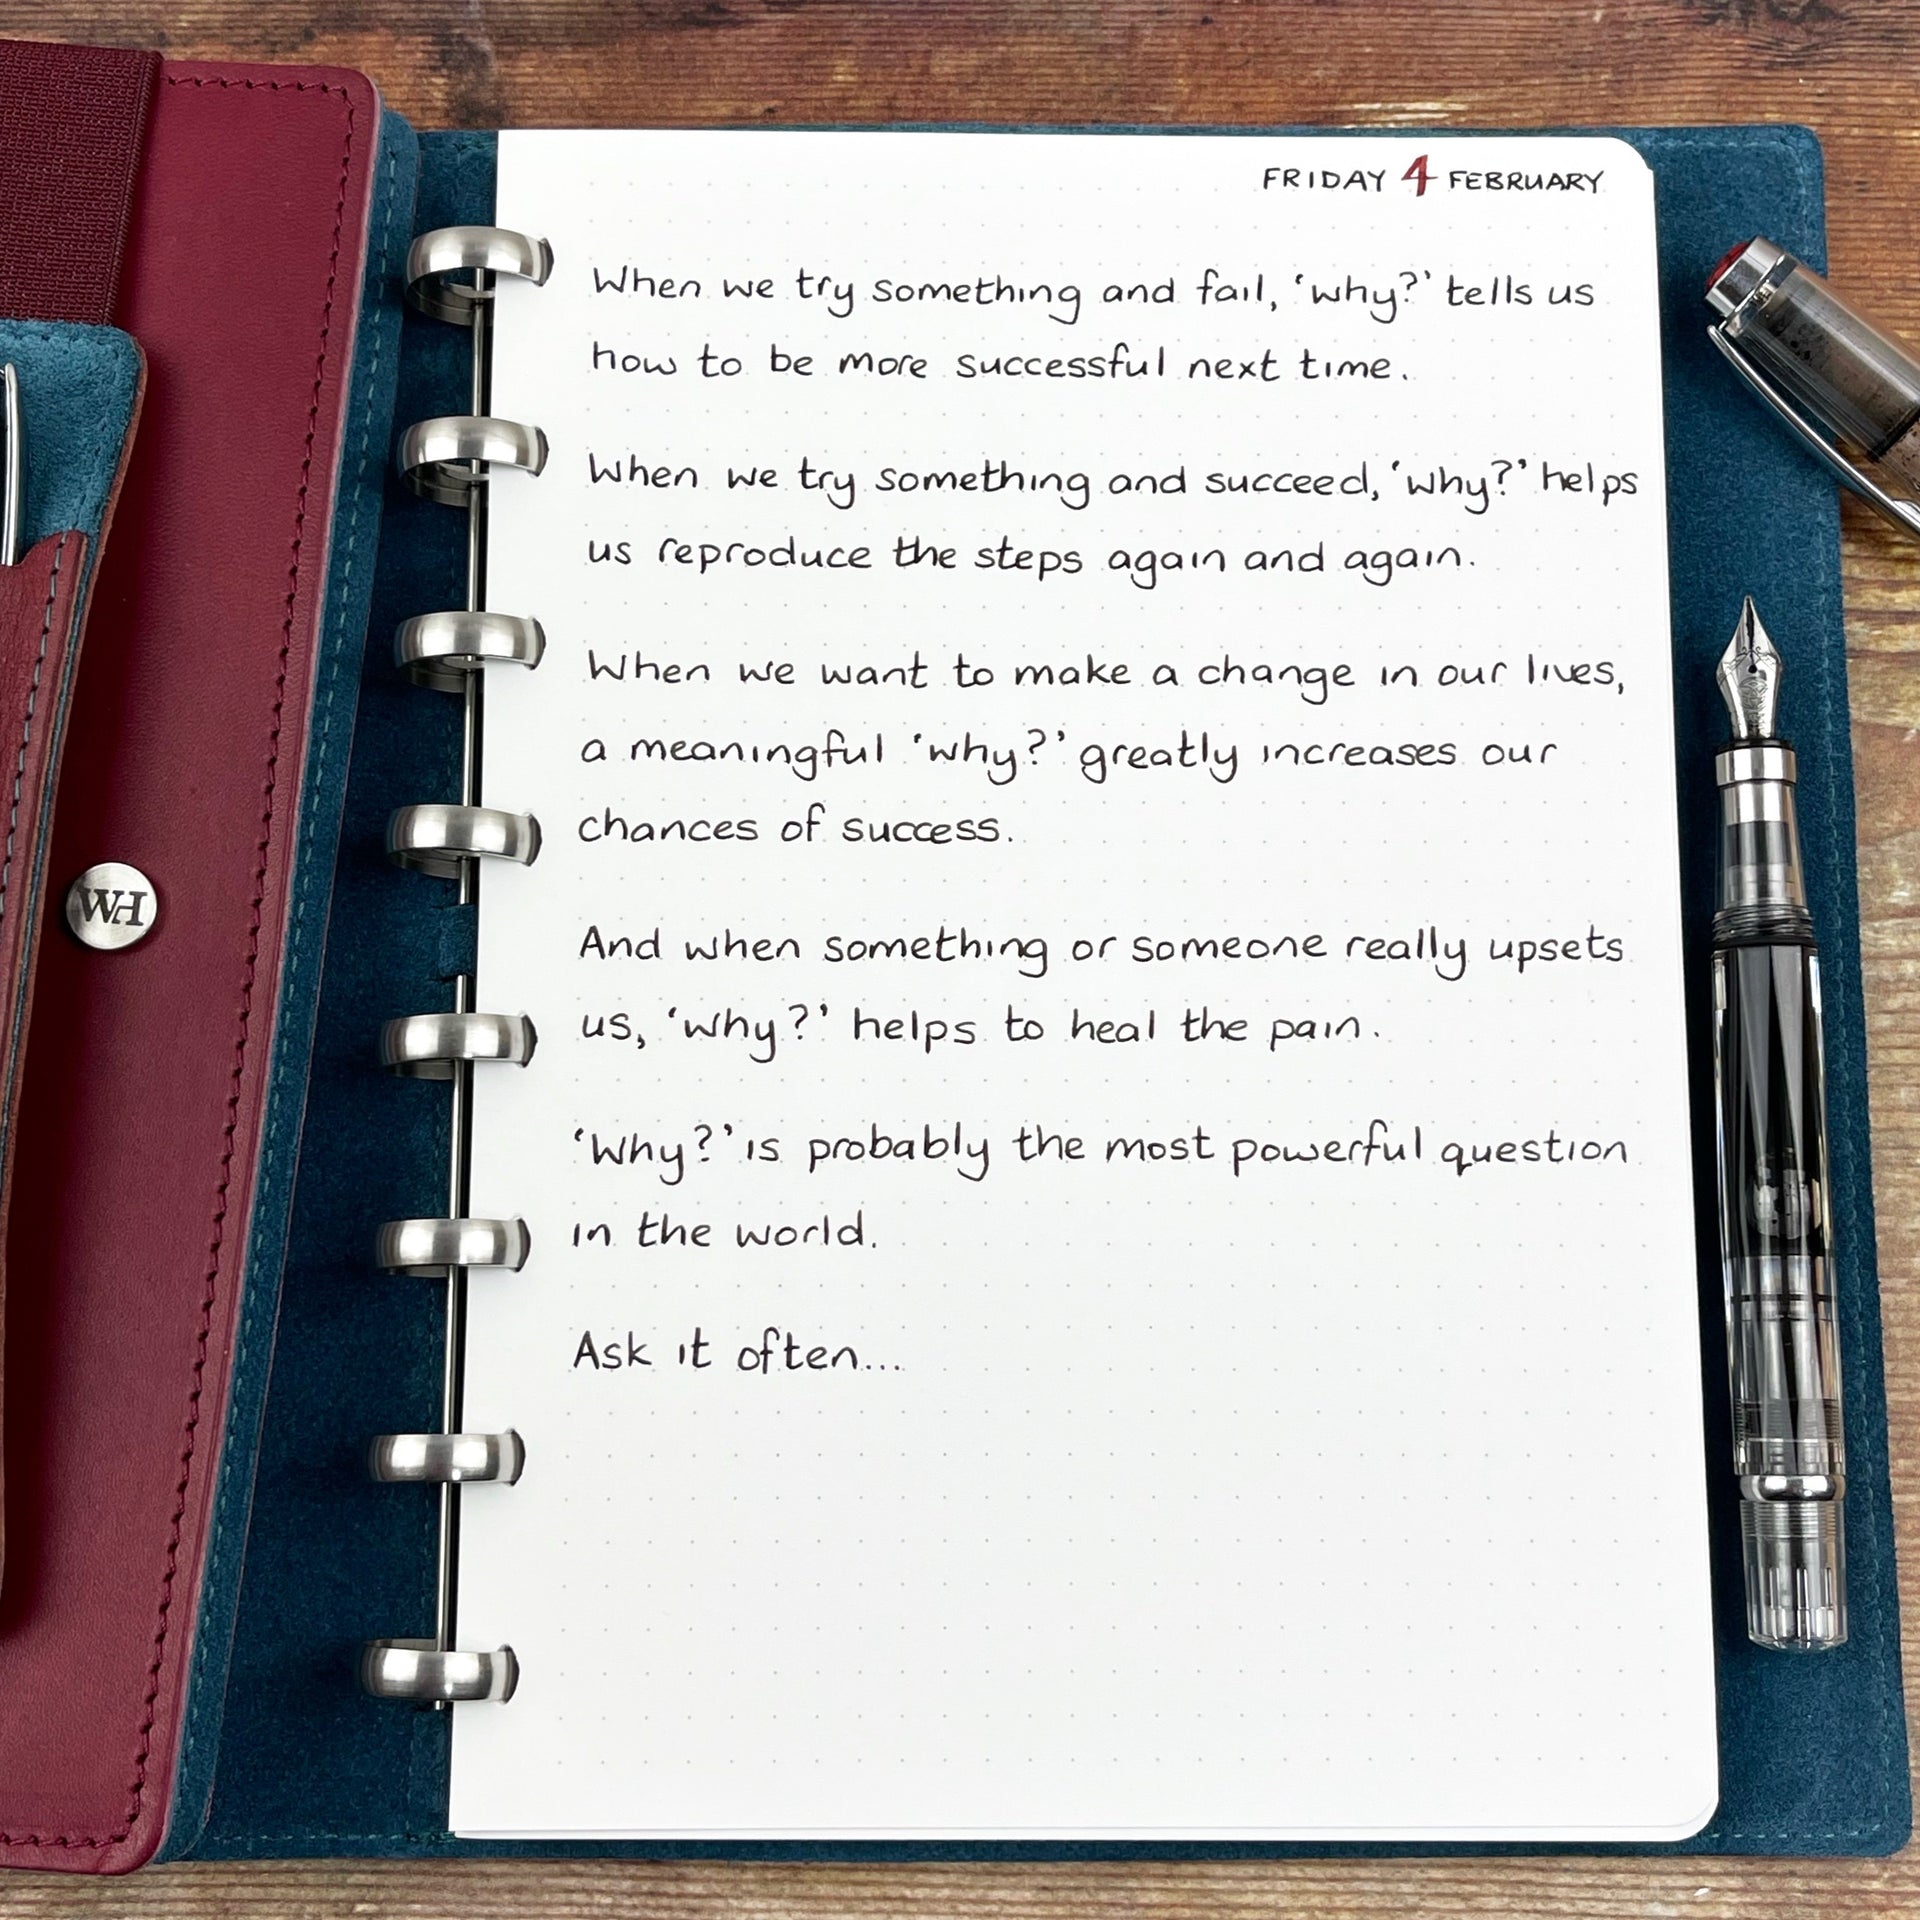 FRIDAY 4 FEBRUARY
When we try something and fail, ‘why?’ tells us
how to be more successful next time.
When we try something and succeed, ‘why?’ helps
us reproduce the steps again and again.
When we want to make a change in our lives,
a meaningful ‘why?’ greatly increases our
chances of success.
And when something or someone really upsets
us, ‘why?’ helps to heal the pain.
‘Why?’ is probably the most powerful question
in the world.
Ask it often...
WH